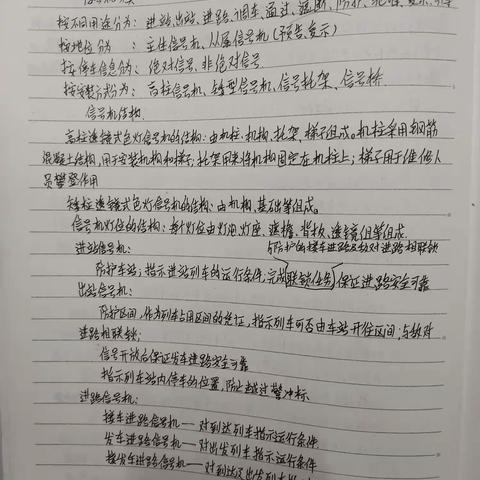 按不同用途分为：进站、出站、进路、调车、通过、遮断、防护、
按地位分为：主体信号机、从属信号机（预告、复示）
按停车信息分为：绝对信号、非绝对信号
按安装分式为：高柱信号机、矮型信号机、信号托架、信号桥
信号机结构
高柱透镜式色灯信号机的结构：由机柱、机构、托架、梯子组成。机柱采用钢筋
混凝土结构，用于安装机构和梯子；托架用来将机构固定在机柱上；梯子用于维修人
员攀登作用
矮柱透镜式色灯信号机的结构：由机构、基础等组成。
信号机灯位的结构：每个灯位由灯泡、灯座、遮檐、背板、透镜组等组成
进站信号机：
与防护的接车进路及敌对进路相联锁
防护车站；指示进站列车的运行条件，完成联锁任务，保证进路安全可靠
出站信号机：
防护区间，作为列车占用区间的凭证，指示列车可否由车站开往区间；与敌对
进路相联锁；
信号开放后保证发车进路安全可靠
指示列车站内停车的位置，防止越过警冲标
进路信号机：
接车进路信号机——对到达列车指示运行条件
发车进路信号机——对出发列车指示运行条件
接发车进路信号机——对到达及出发列车